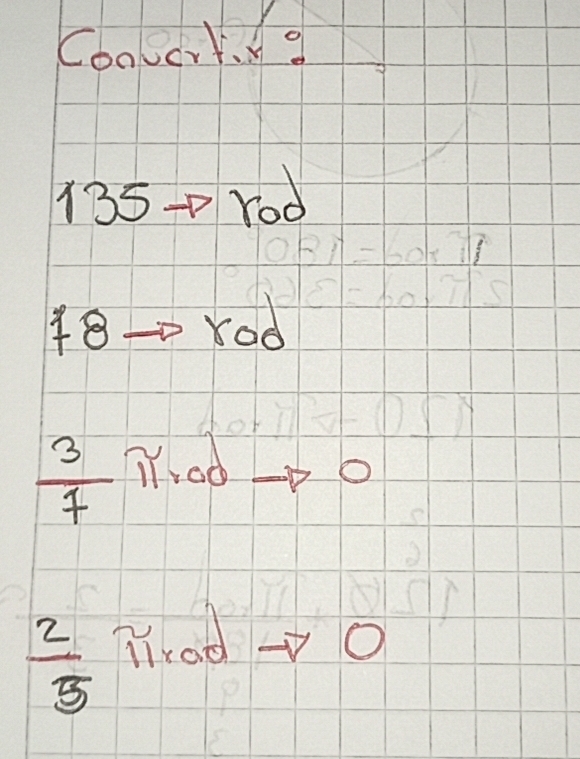 Convertir:
135 → rad
78 → rad
3/7 π rad → °
2/5 π rad → °